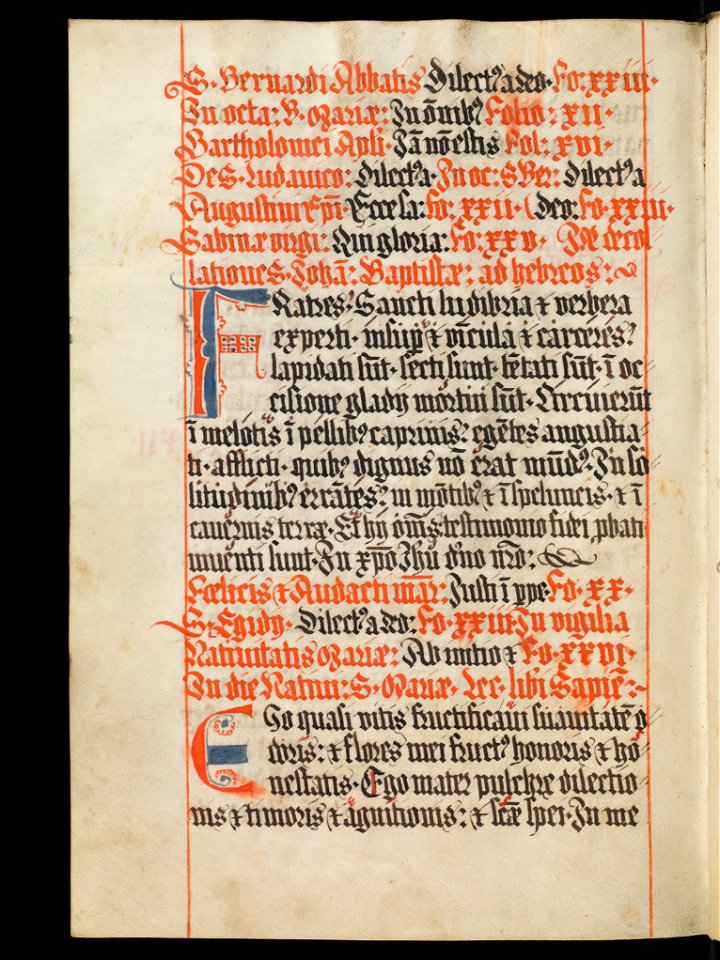 S. Bernardi Abbatis Dilect9 a deo. Fo: xxiii.
In octa: B. Mariæ: In õnib9 Folio. xii.
Bartholomei Apli. Iã nõ estis Fol: xvi.
De S. Ludauico: Dilect9 a. In oc: S Ber: Dilect9 a
Augustini Epi. Eccesa: Fo: xxii. (deo: Fo. xxiii.
Sabinæ virgi: Qui gloria: Fo: xxv. In decol
latione S. Iohã: Baptistæ: ad hebreos:
FRatres: Sancti ludibria & verbera
experti. insup & vĩcula & carceres:
lapidati sũt. secti sunt. tẽtati sũt. ĩ oc
cisione gladij mortui sũt. Circuierũt
ĩ melotis ĩ pellib9 caprinis: egẽtes angustia
ti. afflicti. quib9 dignus nõ erat mũd9. In so
litudinib9 errãtes: in mõtib9 & ĩ speluncis. & ĩ
cauernis terræ. Et hij oms testimonio fidei pbati
inuenti sunt. In xpo Ihu dno nro:
Fœlicis & Audacti mar: Iusti ĩ ppe. Fo. xx.
S. Egidij. Dilect9 a deo: Fo. xxiii. In vigilia
Natiuitatis Mariæ: Ab initio & Fo. xxvi.
In die Natiui: S. Mariæ. Lec. libi Sapiẽ:
EGo quasi vitis fructificaui suauitatẽ o
doris: & flores mei fruct9 honoris & ho
nestatis. Ego mater pulchre dilectio
nis & timoris & agnitionis: & scæ spei. In me